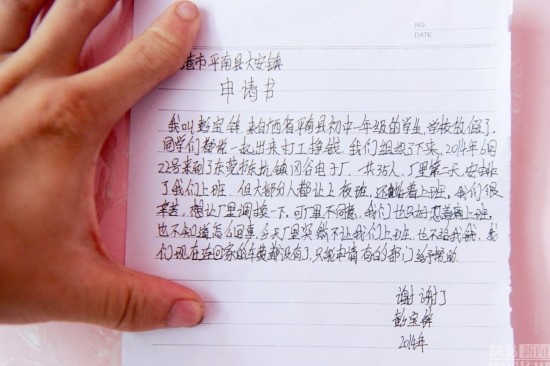 NO.
DATE.
港市平南县大安镇
申请书
我叫彭宝锋 来自广西省平南县初中一年级的学生,学校放假了,
同学们都说一起出来打工挣钱,我们组织了下来,2014年6月
22号来到了东莞市东坑镇冈谷电子厂,一共35人,厂里第二天安排
了我们上班,但大部分人都让上夜班,还站着上班,我们很
辛苦,想让厂里调换一下,可厂里不同意,我们也只好忍着上班,
也不知道怎么回事,今天厂里突然不让我们上班,也不给我钱,我
们现在连回家的车费都没有了,只能申请有的部门给予帮助.
谢谢了
彭宝锋
2014年